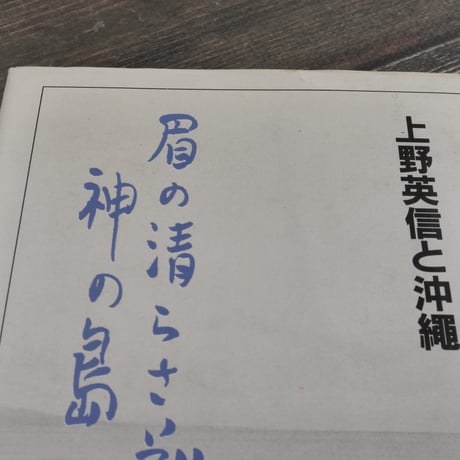 上野英信と沖縄
眉の清らさ
神の島